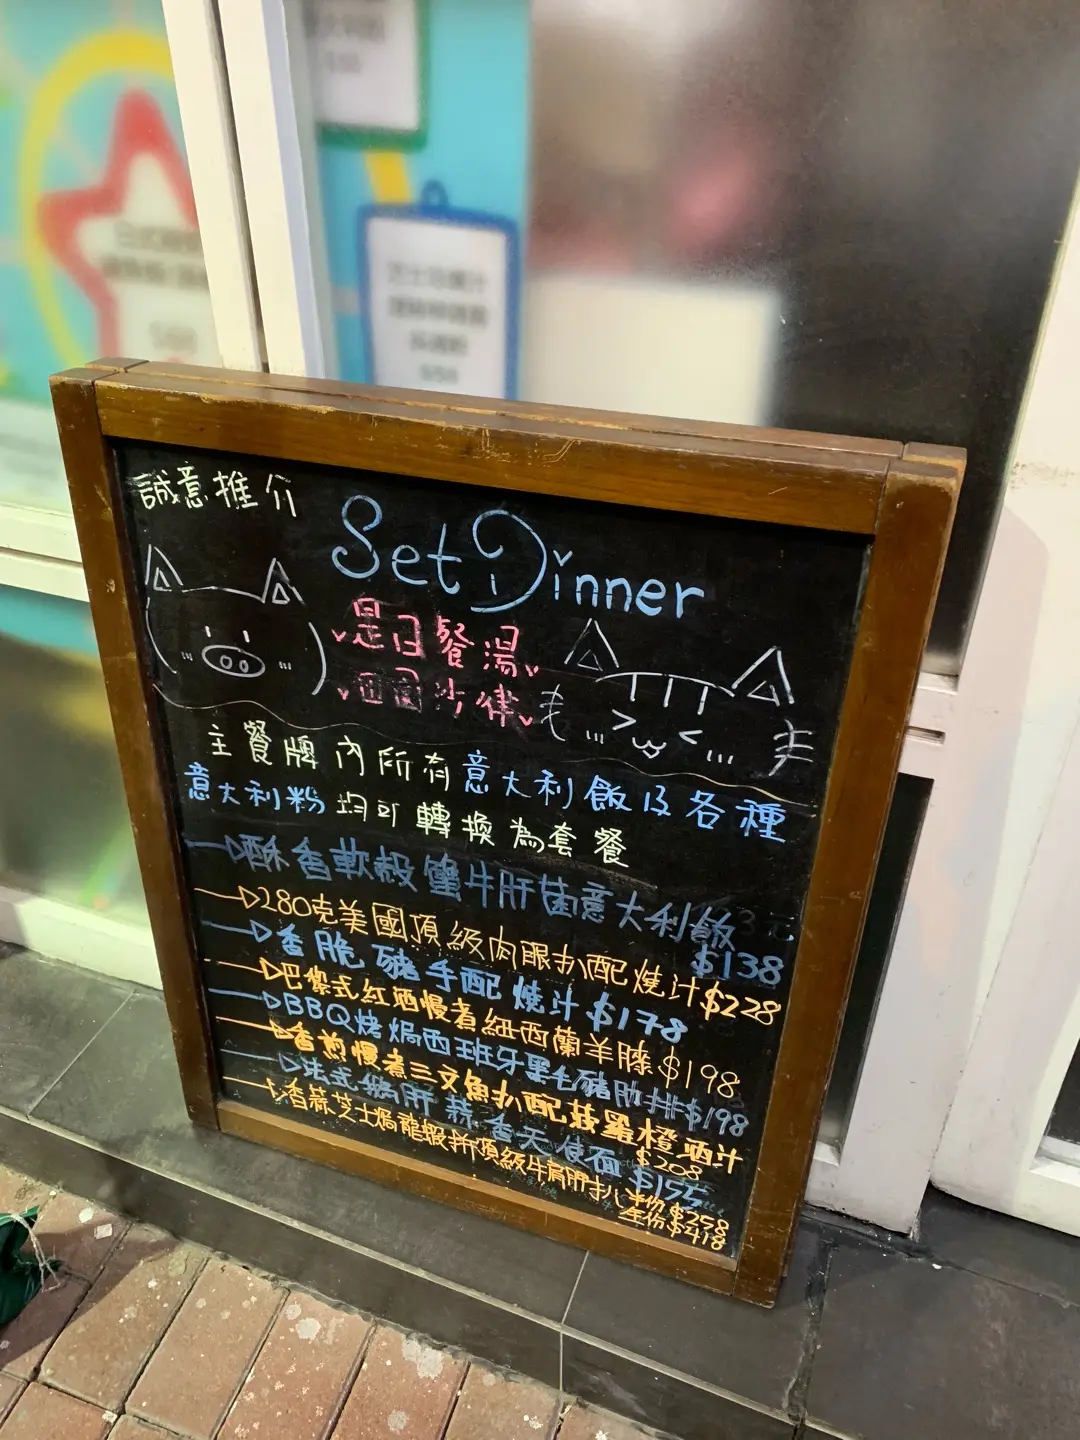 誠意推介
Set Dinner
是日餐湯
田園沙律
主餐牌內所有意大利飯及各種
意大利粉均可轉換為套餐
酥香軟殼蟹牛肝菌意大利飯
$138
280克美國頂級肉眼扒配燒汁$228
香脆豬手配燒汁$178
巴黎式紅酒慢煮紐西蘭羊膝$198
BBQ烤焗西班牙黑毛豬肋排$198
香煎慢煮三文魚扒配莓果橙酒汁
$208
法式鵝肝蒜香天使面 $155
香蒜芝士焗龍蝦拼頂級牛肩胛扒半份$258
年份$418